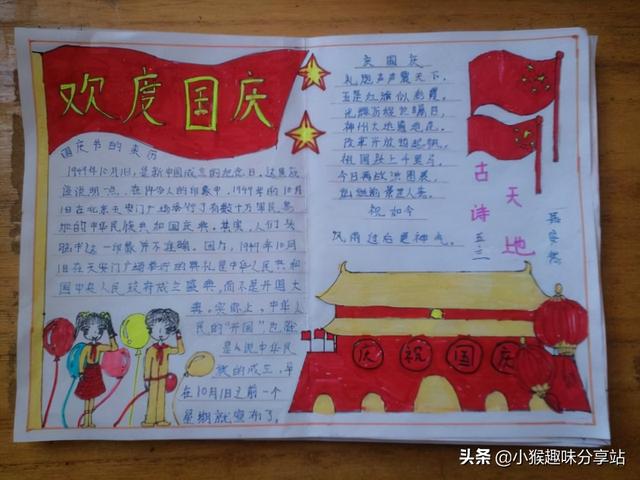 欢度国庆
国庆节的来历
1949年10月1日,是新中国成立的纪念日。这里应
该说明一点,在许多人的印象中,1949年的10月
1日在北京天安门广场举行了有数十万军民参
加的中华人民共和国开国大典。其实,人们头
脑中这一印象并不准确。因为,1949年10月
1日在天安门广场举行的典礼是中华人民共和
国中央人民政府成立盛典,而不是开国大
典。实际上,中华人
民的“开国”也就
是人说中华民
族的成立,早
在10月1日之前一个
星期就宣布了。
庆国庆
礼炮声声震天下,
五星红旗似彩霞。
神州大地遍地花。
改革开放
祖国
今日再放洪图展,
祝如今
风雨过后更神气。
古诗
天地
五三
庆祝国庆
头条 @小猴趣味分享站